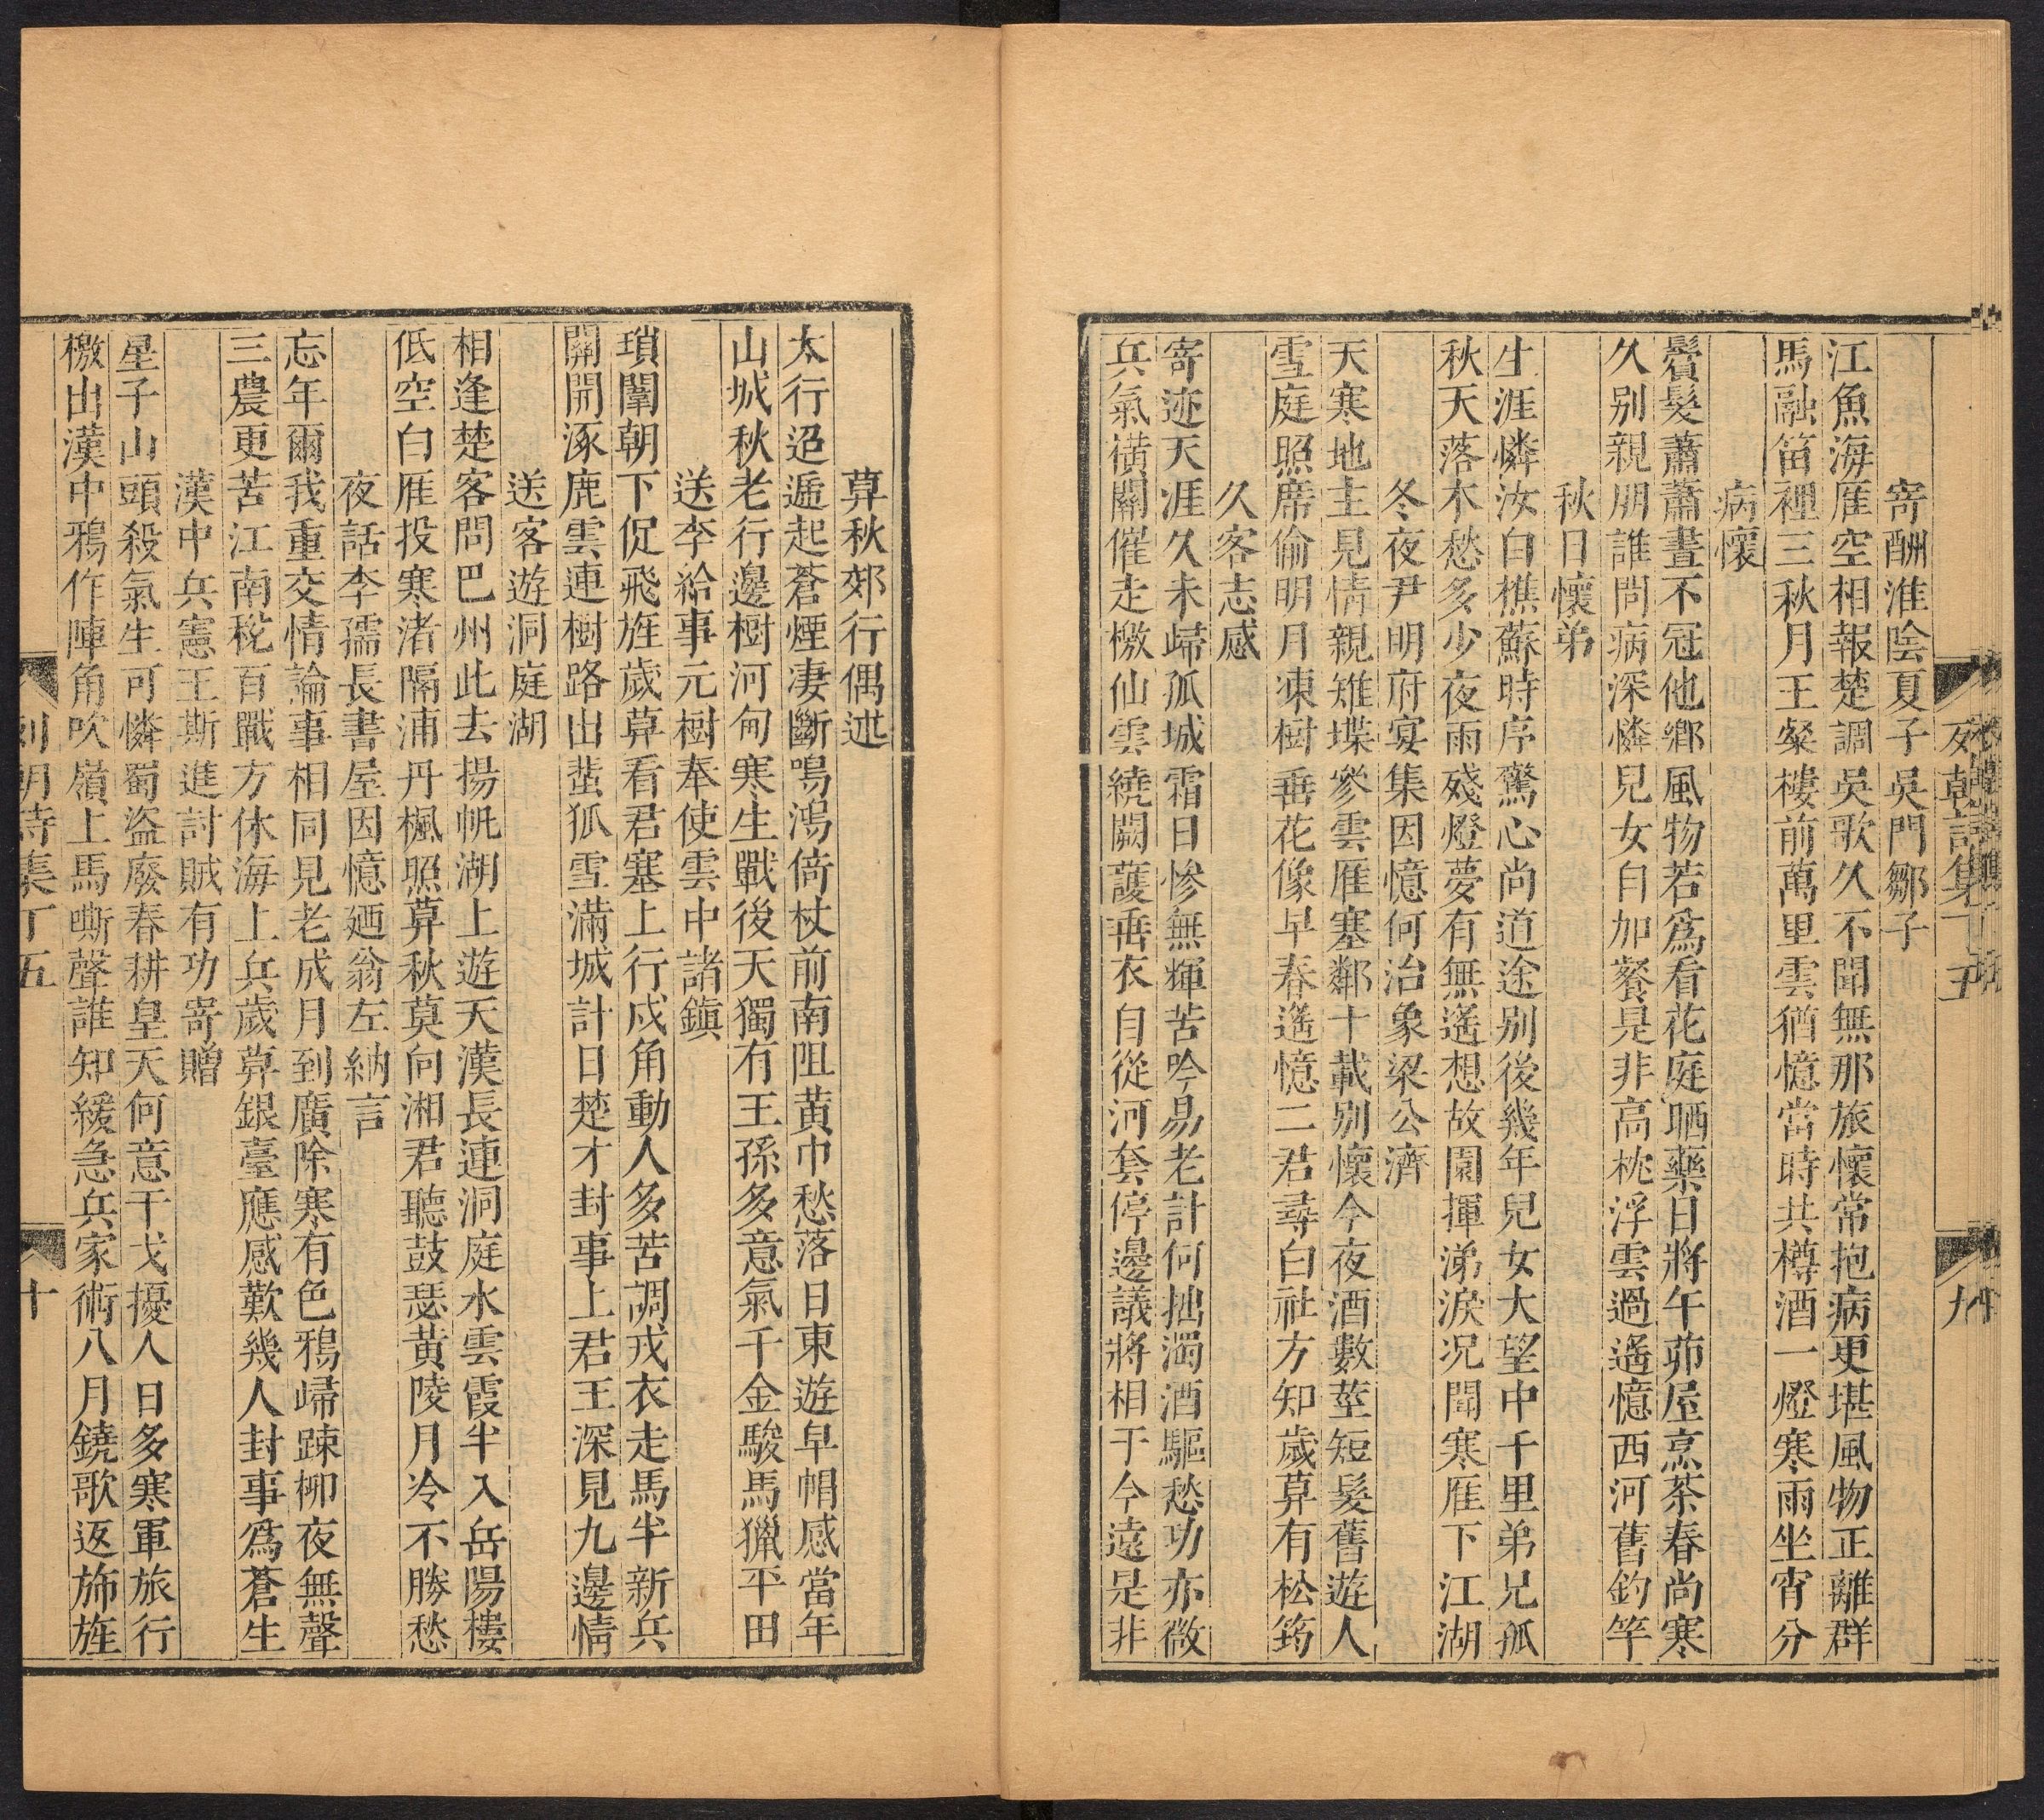 寄酬淮陰夏子吳門鄒子
江魚海雁空相報楚調吳歌久不聞無那旅懷常抱病更堪風物正離群
馬融笛裡三秋月王粲樓前萬里雲猶憶當時共樽酒一燈寒雨坐宵分
病懷
鬢髮蕭蕭晝不冠他鄉風物若爲看花庭晒藥日將午茆屋烹茶春尚寒
久别親朋誰問病深憐兒女自加餐是非高枕浮雲過遙憶西河舊釣竿
秋日懷弟
生涯憐汝自樵蘇時序驚心尚道途别後幾年兒女大望中千里弟兄孤
秋天落木愁多少夜雨殘燈夢有無遙想故園揮涕淚况聞寒雁下江湖
冬夜尹明府宴集因憶何治象梁公濟
天寒地主見情親雉堞參雲雁塞鄰十載别懷今夜酒數莖短髮舊遊人
雪庭照席偷明月凍樹垂花像早春遙憶二君尋白社方知歲暮有松筠
久客志感
寄迹天涯久未歸孤城霜日慘無輝苦吟易老計何拙濁酒驅愁功亦微
兵氣橫關催走檄仙雲繞闕護垂衣自從河套停邊議將相于今遠是非
九
暮秋郊行偶述
太行迢遞起蒼煙凄斷鳴鴻倚杖前南阻黄巾愁落日東遊皁帽感當年
山城秋老行邊樹河甸寒生戰後天獨有王孫多意氣千金駿馬獵平田
送李給事元樹奉使雲中諸鎭
瑣闈朝下促飛旌歲暮看君塞上行戍角動人多苦調戎衣走馬半新兵
關開涿鹿雲連樹路出蜚狐雪滿城計日楚才封事上君王深見九邊情
送客遊洞庭湖
相逢楚客問巴州此去揚帆湖上遊天漢長連洞庭水雲霞半入岳陽樓
低空白雁投寒渚隔浦丹楓照暮秋莫向湘君聽鼓瑟黄陵月冷不勝愁
夜話李孺長書屋因憶廼翁左納言
忘年爾我重交情論事相同見老成月到廣除寒有色鴉歸踈柳夜無聲
三農更苦江南稅百戰方休海上兵歲暮銀臺應感歎幾人封事爲蒼生
漢中兵憲王斯進討賊有功寄贈
星子山頭殺氣生可憐蜀盜廢春耕皇天何意干戈擾人日多寒軍旅行
檄出漢中鴉作陣角吹嶺上馬嘶聲誰知緩急兵家術八月鐃歌返斾旌
列朝詩集丁五
十